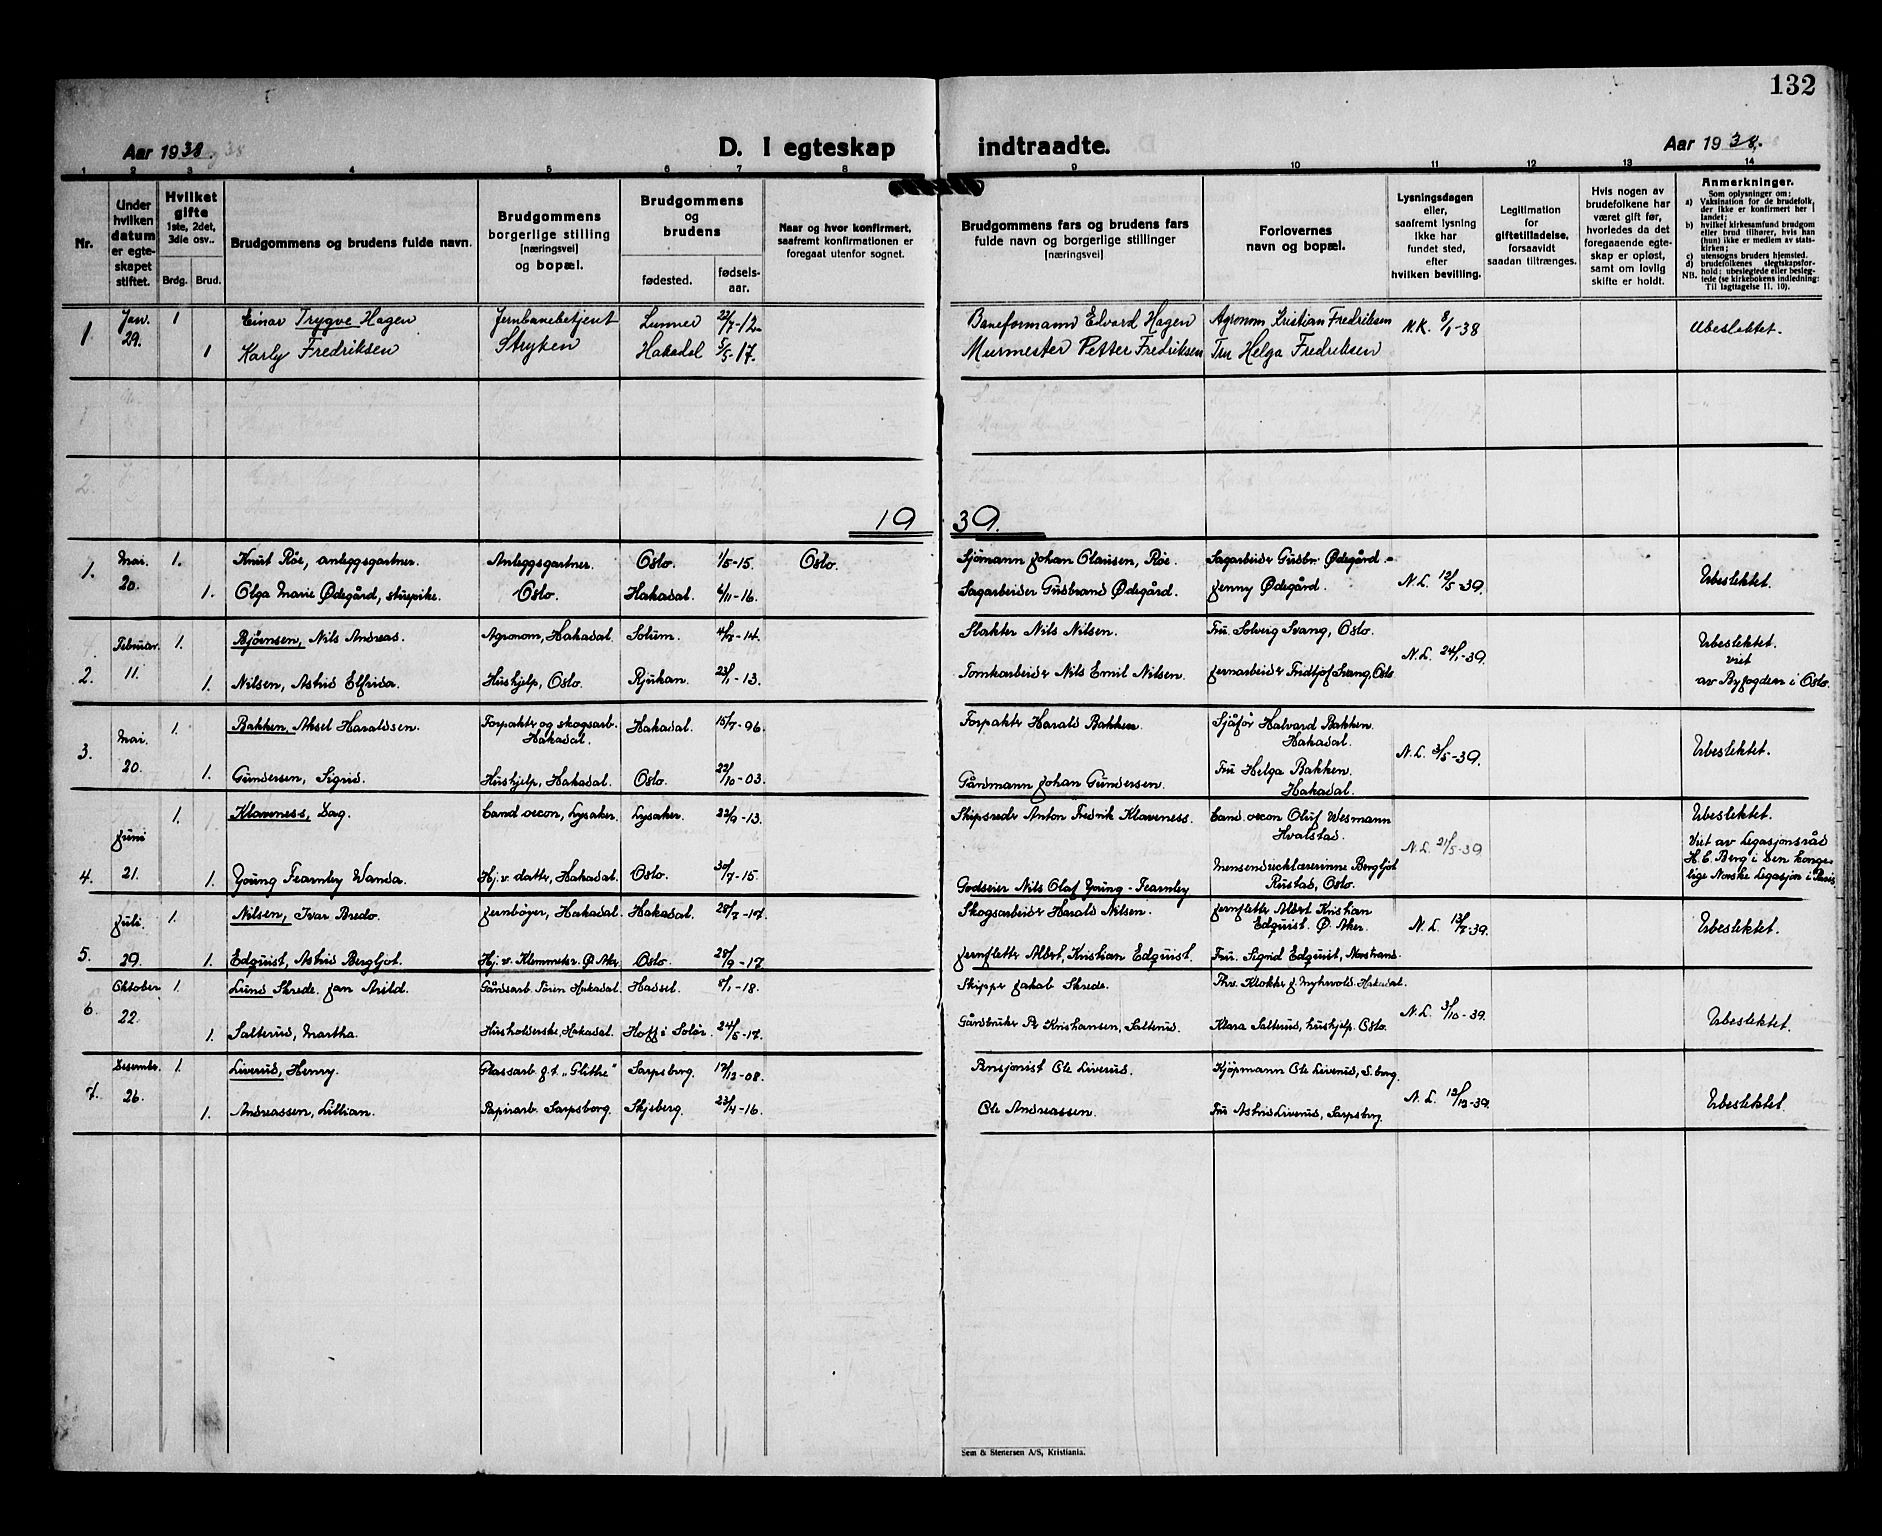 132
Aar 1938.
D. I egteskap indtraadte.
Aar 1938.
1 2 3 4 5 6 7 8 9 10 11 12 13 14
Nr.
Under hvilken datum er egteskapet stiftet.
Hvilket gifte 1ste, 2det, 3die osv..
Brdg. Brud.
Brudgommens og brudens fulde navn.
Brudgommens borgerlige stilling [næringsvei] og bopæl.
Brudgommens og brudens
fødested. fødsels-aar.
Naar og hvor konfirmert, saafremt konfirmationen er foregaat utenfor sognet.
Brudgommens fars og brudens fars fulde navn og borgerlige stillinger [næringsvei]
Forlovernes navn og bopæl.
Lysningsdagen eller, saafremt lysning ikke har fundet sted, efter hvilken bevilling.
Legitimation for giftetilladelse, forsaavidt saadan tiltrænges.
Hvis nogen av brudefolkene har været gift før, hvorledes da det foregaaende egteskap er opløst, samt om lovlig skifte er holdt.
Anmerkninger.
Som oplysninger om:
a) Vaksination for de brudefolk, der ikke er konfirmert her i landet;
b) hvilket kirkesamfund brudgom eller brud tilhører, hvis han (hun) ikke er medlem av statskirken;
c) utensogns bruders hjemsted.
d) brudefolkenes slegtskapsforhold: ubeslegtede eller beslegtede (se kirkebokens indledning:
NB. Til Iagttagelse II. 10).
1 Jan. 29. 1 Einar Trygve Hagen Jernbanebetjent Lunner 22/7-12. Baneformann Edvard Hagen Agronom Kristian Fredriksen N.K. 8/1-38 Ubeslektet.
1 Karly Fredriksen Stryken Hakadal 5/5-17. Murmester Petter Fredriksen Fru Helga Fredriksen
1939.
1. Mai. 20. 1. Knut Röe, anleggsgartner. Anleggsgartner. Oslo. 1/5-15. Oslo. Sjömann Johan Olaisen, Röe. Sagarbeider Gudbr. Ødegård. N.L. 12/5-39. Ubeslektet.
1. Olga Marie Ødegård, stuepike. Oslo. Hakadal. 4/11-16. Sagarbeider Gudbrand Ødegård. Jenny Ødegård.
2. Februar. 11. 1. Bjørnsen, Nils Andreas. Agronom, Hakadal. Solum. Slakter Nils Nilsen. Fru. Solveig Svang, Oslo. N.L. 24/1-39. Ubeslektet. viet av Byfogden i Oslo.
1. Nilsen, Astrid Elfrida. Hushjelp, Oslo. Rjukan. 23/1-13. Tomtearbeider Nils Emil Nilsen. Jernarbeider Fridtjof Svang, Oslo
3. Mai. 20. 1. Bakken, Aksel Haraldsen. Forpakter og skogsarb. Hakadal. Hakadal. 15/7-96. Forpakter Harald Bakken. Sjåfør Halvard Bakken. Hakadal. N.L. 3/5-39. Ubeslektet.
1. Gundersen, Sigrid. Hushjelp, Hakadal. Oslo. 22/10-03. Gårdmann Johan Gundersen. Fru Helga Bakken. Hakadal.
4. Juni 21. 1. Klaveness, Dag. Cand oecon, Lysaker. Lysaker. 22/9-13. Skipsreder Anton Fredrik Klaveness. Cand. oecon Oluf Wesmann Hvalstad. N.L. 21/5-39. Ubeslektet. Viet av Legasjonsråd H.C. Berg i den kongelige Norske Legasjon i Paris.
1. Young Fearnley Wanda. Hj. v. datter, Hakadal. Oslo. 30/7-15. Godseier Nils Olaf Young-Fearnley Mensendiecklærerinne Bergljot Rustad, Oslo.
5. Juli. 29. 1. Nilsen, Ivar Bredo. Jernbøyer, Hakadal. Hakadal. 28/7-17. Skogsarbeider Harald Nilsen. Jernfletter Albert Kristian Edquist. Ø. Aker. N.L. 13/7-39. Ubeslektet.
1. Edquist, Astrid Bergljot. Hj. v. Klemmetsr. Ø Aker Oslo. 28/9-17. Jernfletter Albert, Kristian Edquist. Fru. Sigrid Edquist, Nordstrand.
6. Oktober 22. 1. Lund Skrede. Jan Arild. Gårdsarb. Tören Hakadal. Hadsel. 8/1-18. Skipper Jakob Skrede. Thv. Klokker J. Myhrvold. Hakadal. N.L. 3/10-39. Ubeslektet.
1. Salterud, Martha. Husholderske, Hakadal. Hoff i Solør. 24/5-17. Gårdbruker Pr. Kristiansen, Salterud. Klara Salterud, hushjelp. Oslo.
7. Desember. 26. 1. Liverud, Henry. Glassarb. g.t. „Glitre" Sarpsborg. 17/12-08. Pensjonist Ole Liverud. Kjøpmann Ole Liverud, S.borg. N.L. 12/12-39. Ubeslektet.
1. Andreassen, Lillian. Papirarb. Sarpsborg. Skjeberg. 23/4-16. Ole Andreassen. Fru Astrid Liverud, Sarpsborg.
Sem & Stenersen A/S, Kristiania.